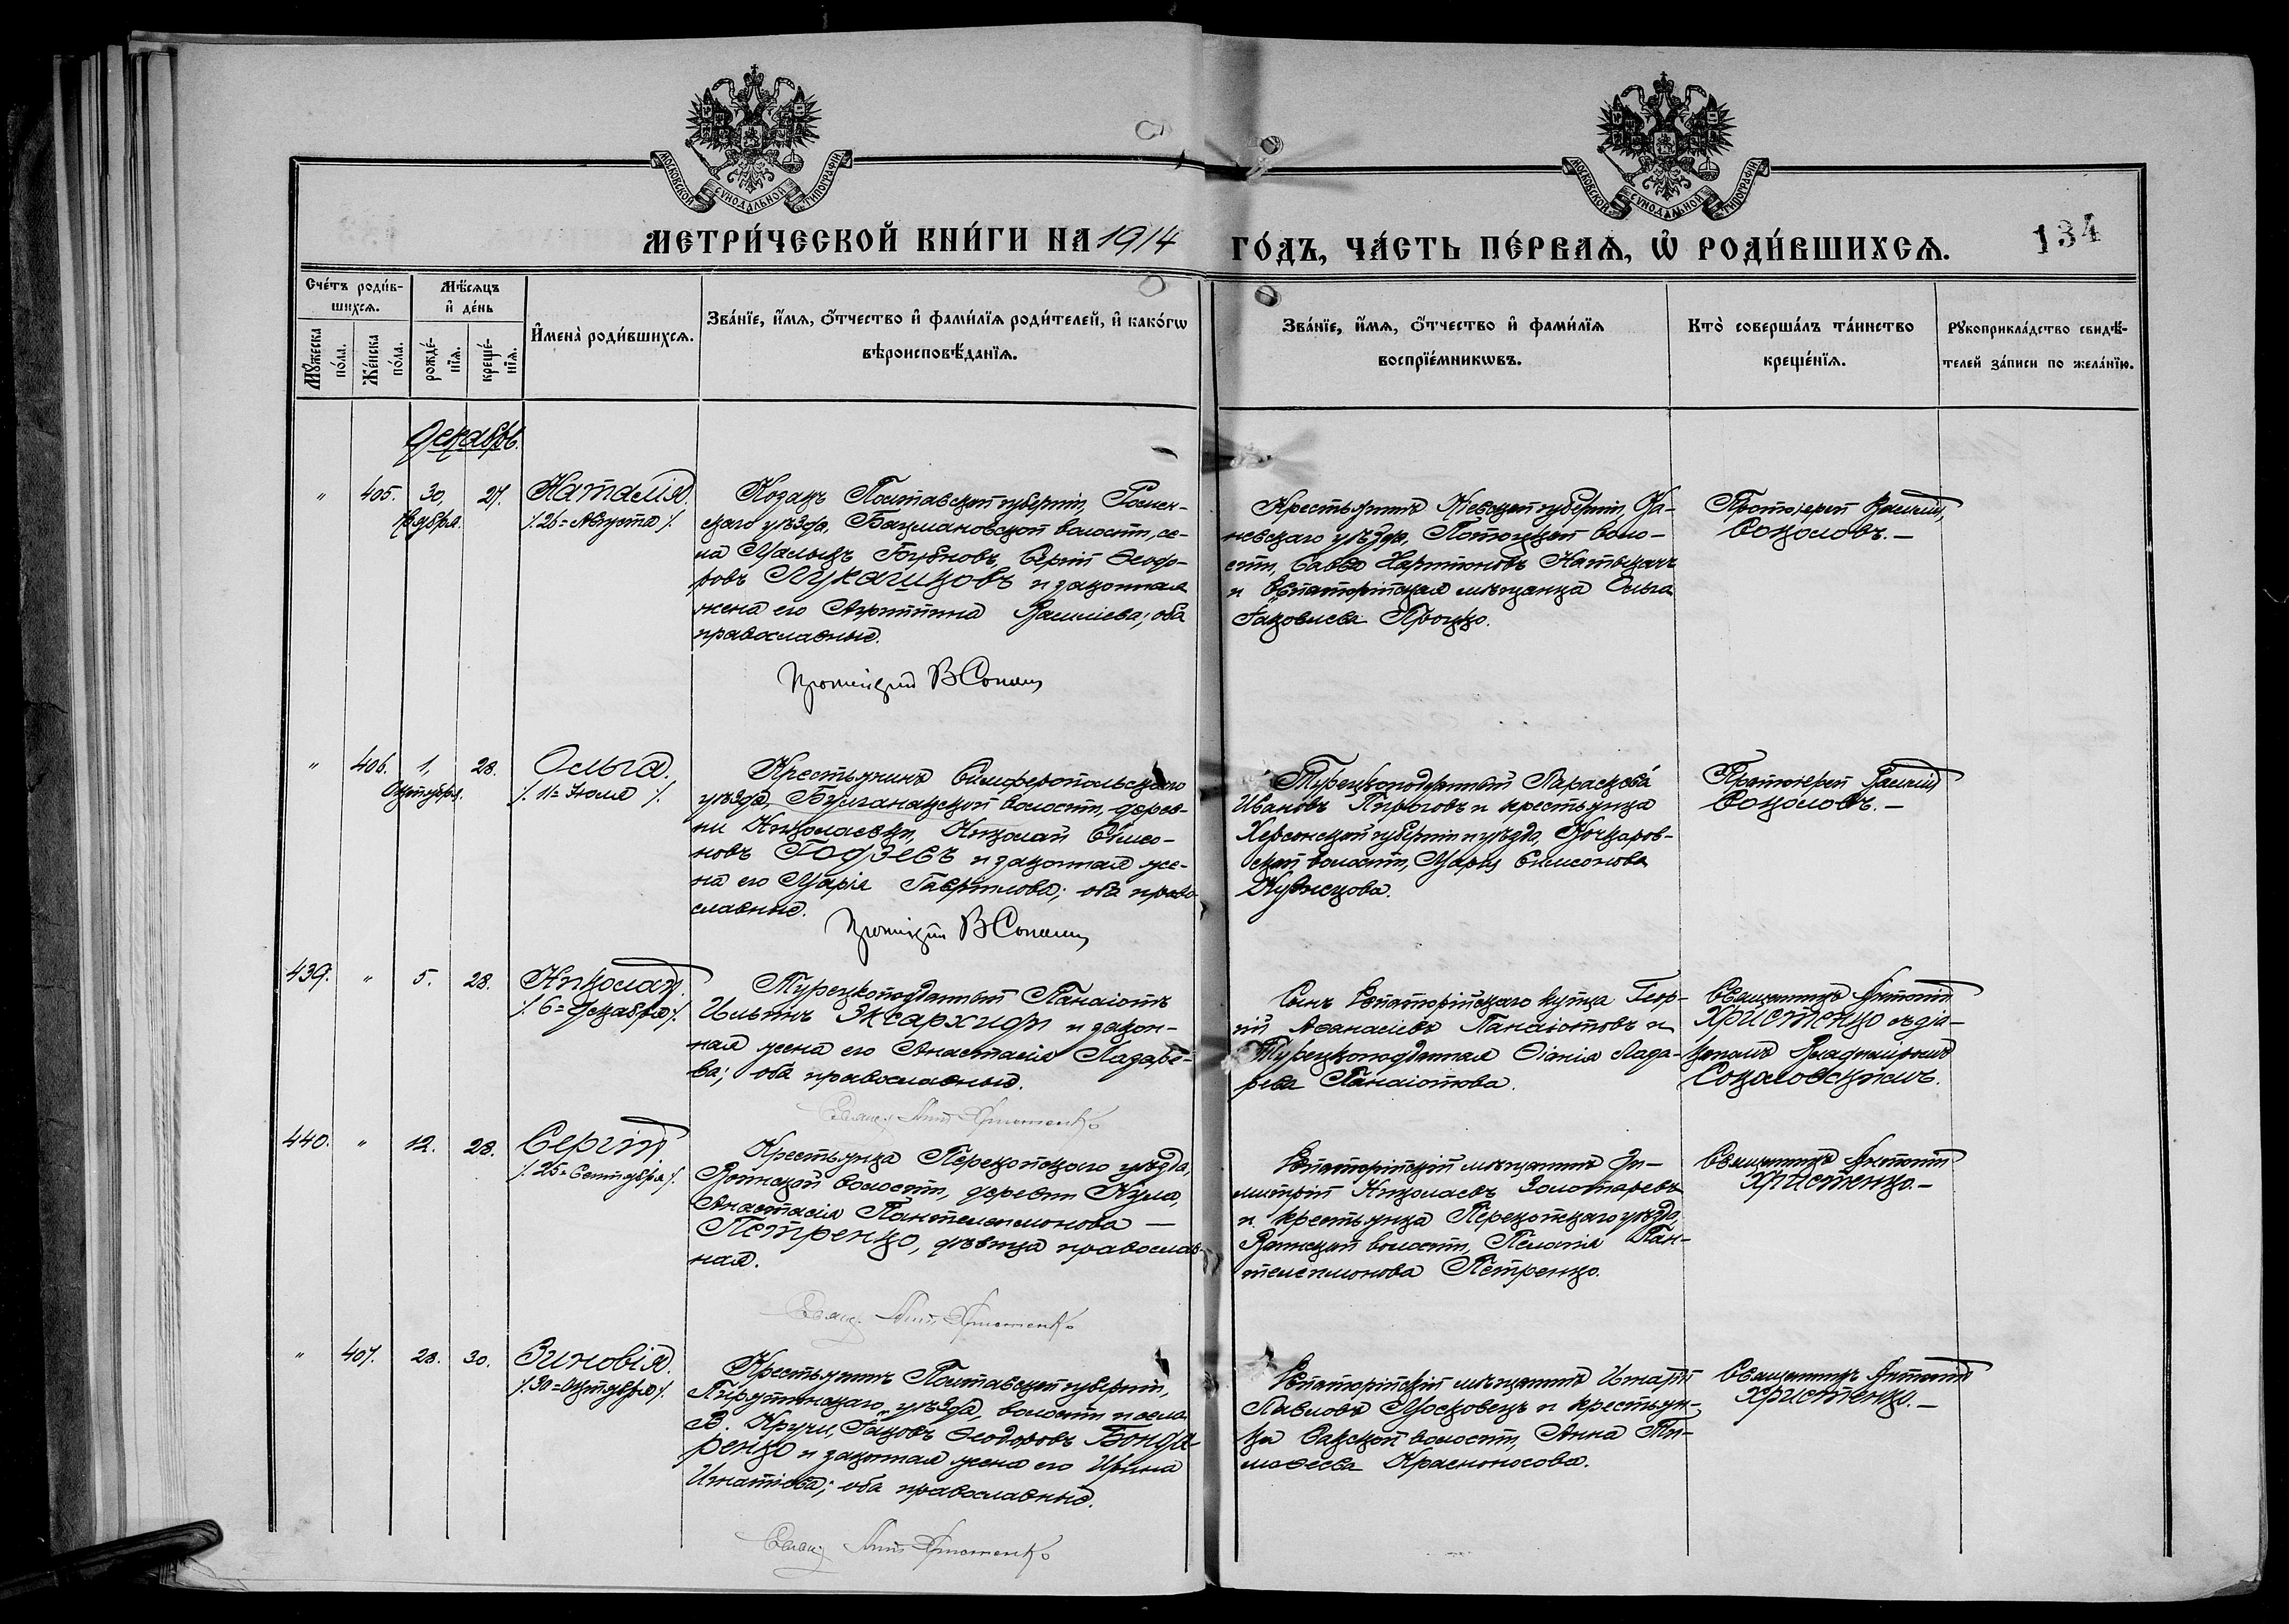 МОСКОВСКОЙ СѴНОДАЛЬНОЙ ТИПОГРАФІИ
МОСКОВСКОЙ СѴНОДАЛЬНОЙ ТИПОГРАФІИ
МЕТРИ́ЧЕСКОЙ КНИ́ГИ НА 1914
ГО́ДЪ, ЧА́СТЬ ПЕ́РВАѦ, Ѡ҆ РОДИ́ВШИХСѦ.
134
Сче́тъ роди́в-
шихсѧ.
Мꙋ́жеска
по́ла.
Же́нска
по́ла.
Мѣ́сяцъ
и҆ де́нь
рожде́-
нїѧ.
креще́-
нїѧ.
И҆мена̀ роди́вшихсѧ.
Зва́нїе, и҆́мѧ, ѻ҆́тчество и҆ фами́лїѧ роди́телей, и҆ како́гѡ
вѣроисповѣ́данїѧ.
Зва́нїе, и҆́мѧ, ѻ҆́тчество и҆ фами́лїѧ
воспрїе́мникѡвъ.
Кто̀ соверша́лъ та́инство
креще́нїѧ.
Рꙋкоприкла́дство свидѣ́-
телей за́писи по жела́нїю.
Декабрь.
" 405. 30, 27. Наталія.
Ноября.
/. 26= Августа /.
Козакъ Полтавской губерніи, Ромен-
скаго уѣзда, Бацмановской волости, се-
ла Малыхъ Бубновъ, Сергій Ѳеодо-
ровъ Лукашковъ и законная
жена его Акилина Василіева; оба
православные.
Протоіерей В Соколовъ
Крестьянинъ Кіевской губерніи, Ка-
невскаго уѣзда, Потокской воло-
сти, Савва Харитоновъ
и Евпаторійская мѣщанка Ольга
Іаковлева Процко.
Протоіерей Василій
Соколовъ.—
" 406. 1, 28. Ольга.
Октября.
/. 11= Іюля /.
Крестьянинъ Симферопольскаго
уѣзда, Булганакской волости, дерев-
ни Николаевки, Николай Симео-
новъ Годзевъ и законная же-
на его Марія Гавриилова; оба право-
славные.
Протоіерей В Соколовъ
Турецкоподданный Параскева
Ивановъ Пироговъ и крестьянка
Херсонской губерніи и уѣзда, Кочкаров-
ской волости, Марія Симеонова
Кузнецова.
Протоіерей Василій
Соколовъ.—
439. " 5. 28. Николай.
/. 6= Декабря /.
Турецкоподданный Панаіотъ
Ильинъ Эксархиди и закон-
ная жена его Анастасія Лазаре-
ва; оба православные.
Свящ. Ант. Христенко
Сынъ Евпаторійскаго купца Геор-
гій Аѳанасіевъ Панаіотовъ и
Турецкоподданная Лаза-
рева Панаіотова.
Священникъ Антоній
Христенко съ діа-
кономъ Владиміромъ
Соколовскимъ.
440. " 12. 28. Сергій.
/. 25= Сентября /.
Крестьянка Перекопскаго уѣзда,
Воинской волости, деревни
Анастасія Пантелеимонова —
Петренко, дѣвица православ-
ная.
Свящ. Ант. Христенко
Евпаторійскій мѣщанинъ Ди-
митрій Николаевъ Золотаревъ
и крестьянка Перекопскаго уѣзда,
Воинской волости, Пелагія Пан-
телеимонова Петренко.
Священникъ Антоній
Христенко.—
" 407. 28. 30. Зиновія.
/. 30= Октября /.
Крестьянинъ Полтавской губерніи,
Пирятинскаго уѣзда, волости и села
В. Кручи, Іаковъ Ѳеодоровъ Бонда-
ренко и законная жена его Ирина
Игнатіева; оба православные.
Свящ. Ант. Христенко
Евпаторійскій мѣщанинъ Игнатій
Павловъ Московецъ и крестьян-
ка Сакской волости, Анна Ти-
моѳеева Красноносова.
Священникъ Антоній
Христенко.—